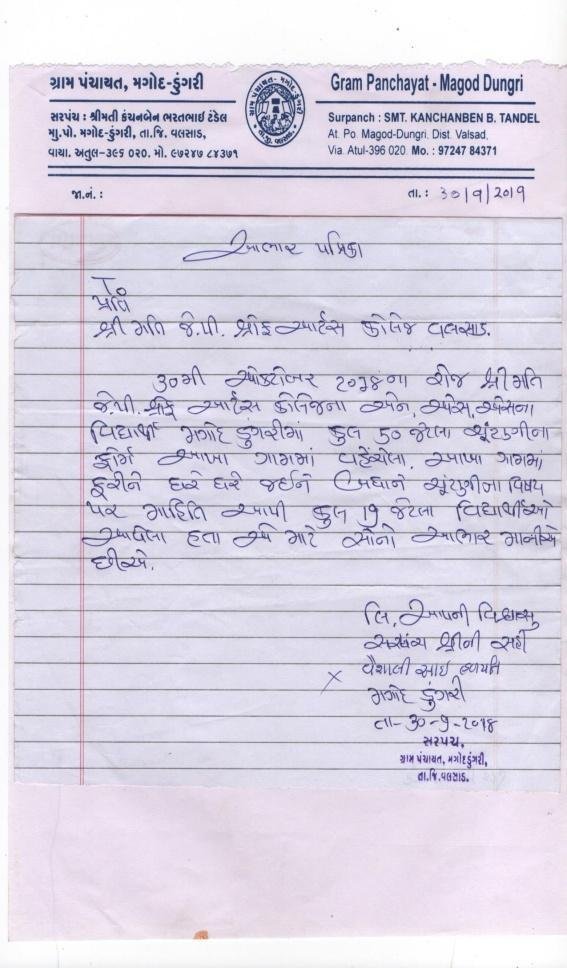 ગ્રામ પંચાયત, મગોદ-ડુંગરી
સરપંચ : શ્રીમતી કંચનબેન ભરતભાઈ ટંડેલ
મુ.પો. મગોદ-ડુંગરી, તા.જિ. વલસાડ,
વાયા. અતુલ-૩૯૬ ૦૨૦. મો. ૯૭૨૪૭ ૮૪૩૭૧
ગ્રામ પંચાયત - મગોદ ડુંગરી
તા.જી. વલસાડ.
Gram Panchayat - Magod Dungri
Surpanch : SMT. KANCHANBEN B. TANDEL
At. Po. Magod-Dungri. Dist. Valsad,
Via. Atul-396 020. Mo. : 97247 84371
જા.નં. :
તા. : 30/9/2019
આભાર પત્રિકા
To
પ્રતિ
શ્રી મતિ જે.પી. શ્રોફ આર્ટસ કોલેજ વલસાડ.
૩૦મી ઓક્ટોબર ૨૦૧૪ના રોજ શ્રીમતિ
જે.પી. શ્રોફ આર્ટસ કોલેજના એન, એસ, એસના
વિદ્યાર્થી મગોદ ડુંગરીમાં કુલ ૬૦ જેટલા ચૂંટણીના
ફોર્મ આખા ગામમાં વહેંચેલા. આખા ગામમાં
ફરીને ઘરે ઘરે જઈને બધાને ચૂંટણીના વિષય
પર માહિતિ આપી કુલ ૧૭ જેટલા વિદ્યાર્થીઓ
આવેલા હતા એ માટે સૌનો આભાર માનીએ
છીએ.
લિ, આપની વિશ્વાસુ
સરપંચ શ્રીની સહી
વૈશાલી આઇ
મગોદ ડુંગરી
તા-૩૦-૧-૨૦૧૪
સરપંચ,
ગ્રામ પંચાયત, મગોદડુંગરી,
તા.જિ.વલસાડ.